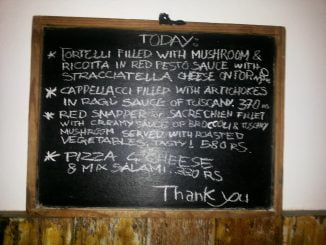 TODAY:
* TORTELLI FILLED WITH MUSHROOM &
RICOTTA IN RED PESTO SAUCE WITH
STRACCIATELLA CHEESE ON TOP
* CAPPELLACCI FILLED WITH ARTICHOKES
IN RAGU SAUCE OF TUSCANY. 370 RS
* RED SNAPPER or SACRECHIEN FILLET
WITH CREAMY SAUCE OF BROCCOLI & TUSCANY
MUSHROOM SERVED WITH ROASTED
VEGETABLES. TASTY! 580 RS.
* PIZZA 4 CHEESE
& MIX SALAMI.. 320 RS
Thank you